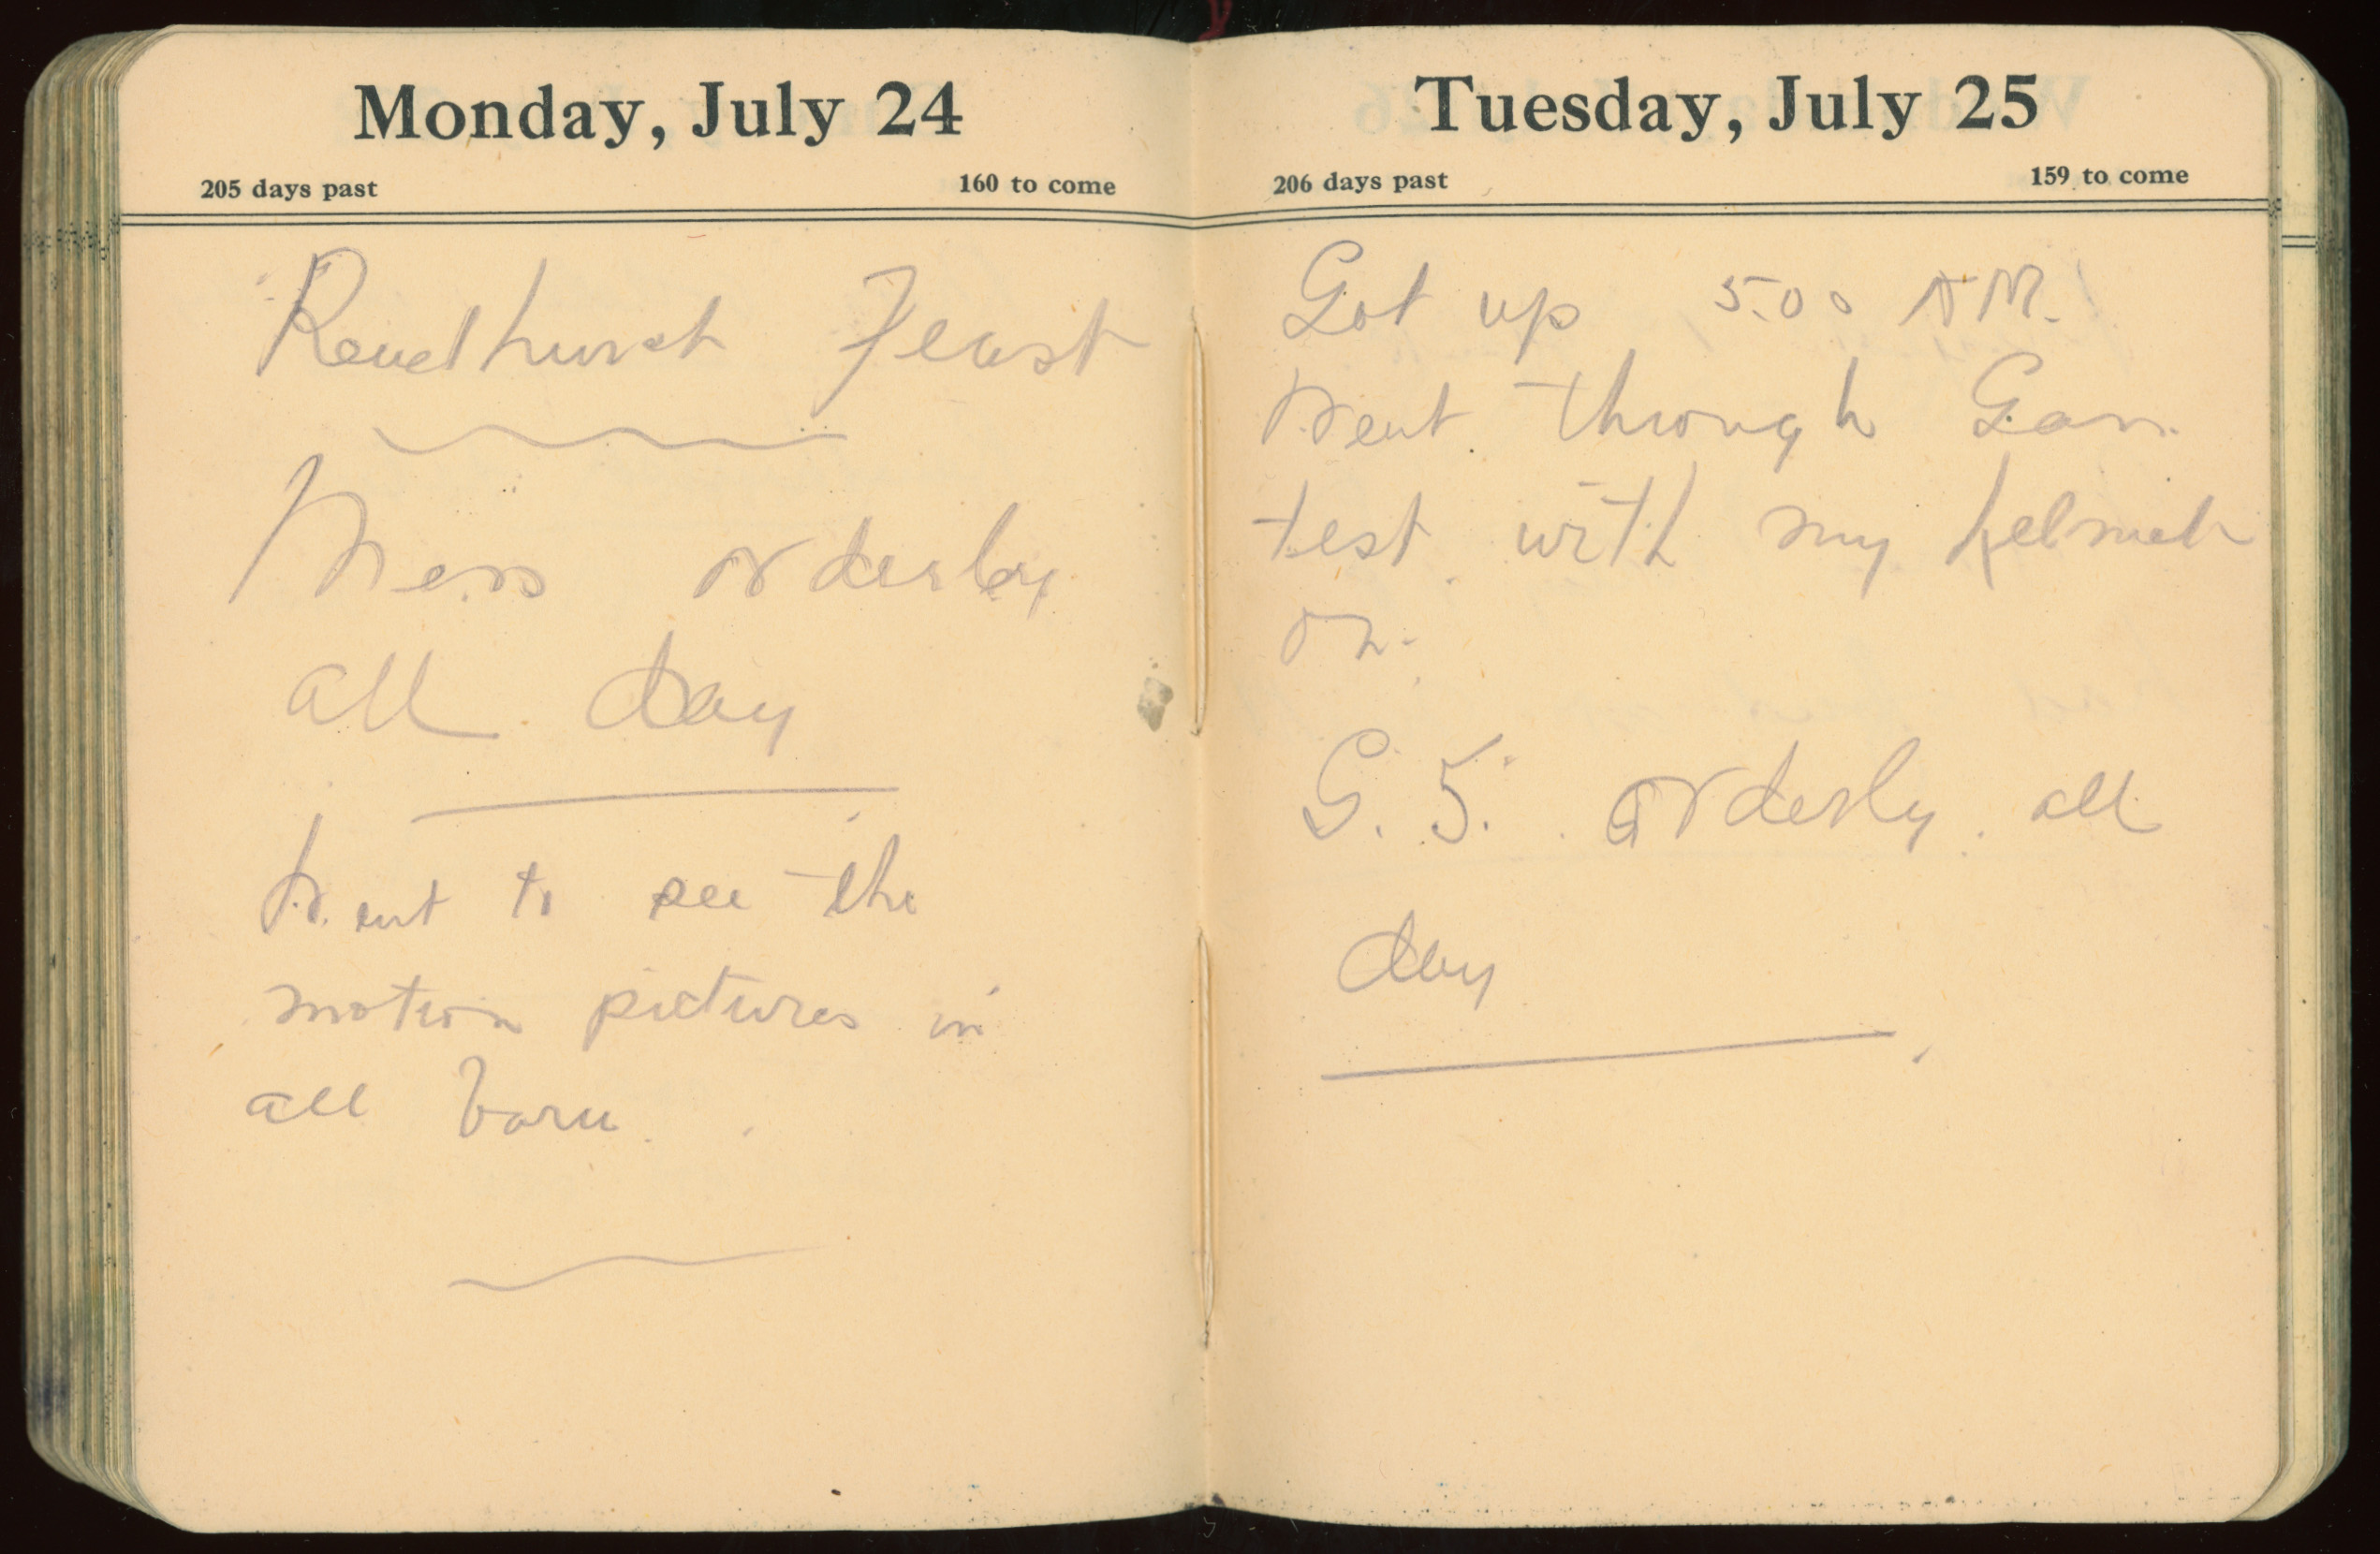 Monday, July 24
205 days past 160 to come
Feast
Mess orderly
all day
Went to see the
motion pictures in
all barn.
Tuesday, July 25
206 days past 159 to come
Got up 5.00 AM.
Went through Gas
test with my helmet
on.
G. S. orderly all
day